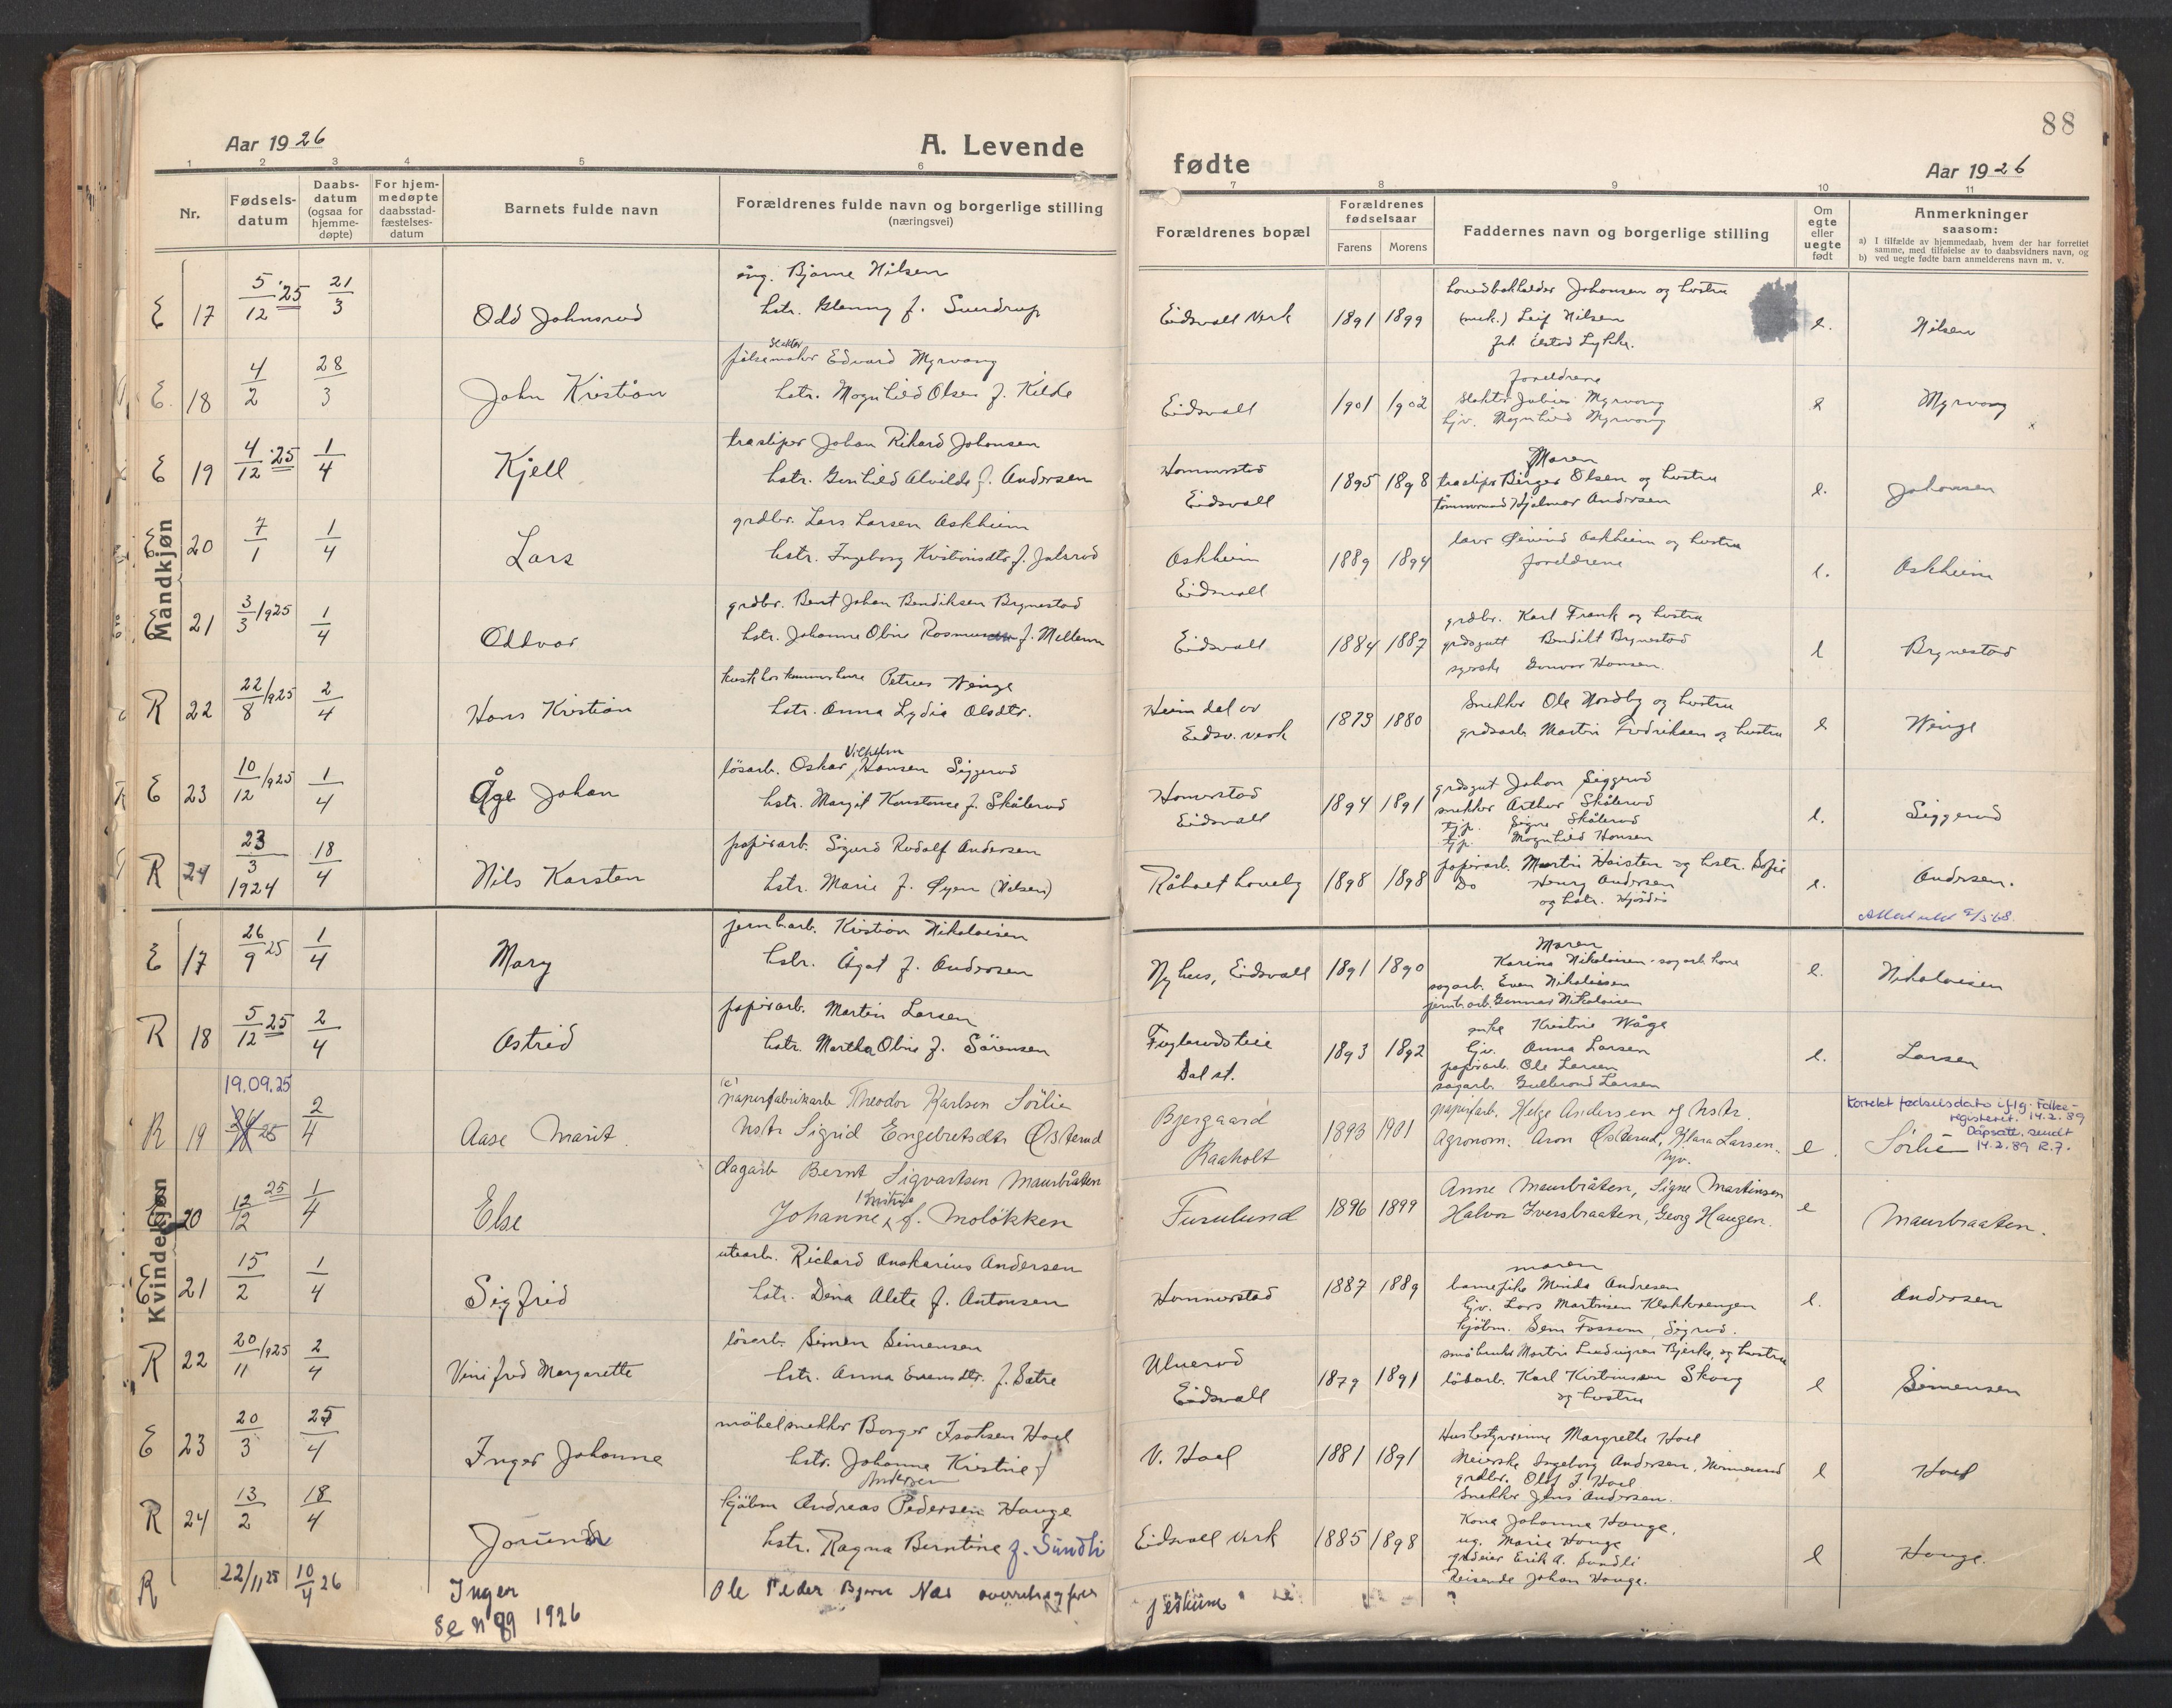 88
Aar 1926
A. Levende
fødte
Aar 1926
1 2 3 4 5 6 7 8 9 10 11
Nr.
Fødsels-
datum
Daabs-
datum
(ogsaa for
hjemme-
døpte)
For hjem-
medøpte
daabsstad-
fæstelses-
datum
Barnets fulde navn
Forældrenes fulde navn og borgerlige stilling
(næringsvei)
Forældrenes bopæl
Forældrenes
fødselsaar
Farens Morens
Faddernes navn og borgerlige stilling
Om
egte
eller
uegte
født
Anmerkninger
saasom:
a) I tilfælde av hjemmedaab, hvem der har forrettet
samme, med tilføielse av to daabsvidners navn, og
b) ved uegte fødte barn anmelderens navn m. v.
Mandkjøn
E 17 5/12 '25 21/3 Odd Johnsrud
ing. Bjarne Nilsen
hstr. Glenny f. Sverdrup
Eidsvall Verk 1891 1899
hovedbokholder Johansen og hustru
(mek.) Leif Nilsen
e. Nilsen
E. 18 4/2 28/3 John Kristian
slakter
pølsemaker Edvard Myrvang
hstr. Magnhild Olsen f. Kilde
Eidsvall 1901 1902
foreldrene
slakter Julius Myrvang
hjv. Magnhild Myrvang
e Myrvang
E 19 4/12 '25 1/4 Kjell
trasliper Johan Rikard Johansen
hstr. Gunhild Alvilde f. Andersen
Hammerstad
Eidsvall
1895 1898
Moren
trasliper Birger Olsen og hustru
tømmermand Hjalmar Andersen
e. Johansen
E 20 7/1 1/4 Lars
grdbr. Lars Larsen Askheim
hstr. Ingeborg Kristiansdtr f. Julsrud
Askheim
Eidsvall
1889 1894
lærer Øivind Askheim og hustru
foreldrene
e. Askheim
E 21 3/3 1925 1/4 Oddvar
grdbr. Bernt Johan Bendiksen Brynestad
hstr. Johanne Oline f. Mellum
Eidsvall 1884 1887
grdbr. Karl Frank og hustru
grdsgutt Bendikt Brynestad
syerske Gunvor Hansen.
e Brynestad
R 22 22/8 1925 2/4 Hans Kristian
Petrus Winge
hstr. Anna Lydia Olsdtr.
Heimdal v/
Eidsv. verk
1873 1880
Snekker Ole Nordby og hustru
grdsarb. Martin Fredriksen og hustru
e Winge
E 23 10/12 1925 1/4 Åge Johan
Vilhelm
løsarb. Oskar Hansen Siggerud
hstr. Margit Konstanse f. Skålerud
Hamerstad
Eidsvall
1894 1891
grdsgut Johan Siggerud
snekker Arthur Skålerud
tjp. Signe Skålerud
tjp. Magnhild Hansen
e. Siggerud
R 24 23/3 1924 18/4 Nils Karsten
papirarb. Sigurd Rudolf Andersen
hstr. Marie f. Øyen (Nilsen)
Råholt 1898 1898
papirarb. Martin Haisten og hstr. Sofie
Do Henry Andersen
og hstr. Hjördis
e. Andersen.
Kvindekjøn
E 17 26/9 25 1/4 Mary
jernbarb. Kristian Nikolaisen
hstr. Ågot f. Andersen
Nyhus, Eidsvall 1891 1890
Moren
Karina Nikolaisen
sagarb. Even Nikolaisen
jernb.arb. Gunnar Nikolaisen
e. Nikolaisen
R 18 5/12 25 2/4 Astrid
papirarb. Martin Larsen
hstr. Martha Oline f. Sörensen
Dal st.
1893 1892
enke Kristine Wåge
hjv. Anna Larsen
papirarb. Ole Larsen
sagarb. Gulbrand Larsen
e. Larsen
19.09.25
R 19 25 2/4 Aase Marit.
papirfabrikarb Theodor Karlsen Sörlie
hstr Sigrid Engebretsdtr Østerud
Bjergaard
Raaholt
1893 1901
papirfarb. Helge Andersen og hstr.
Agronom. Aron Østerud, Klara Larsen.
hjv.
e.
Korrekt fødselsdato iflg. Folke-
registeret. 14.2.89
Dåpsatt. sendt
14.2.89 R.F.
Sörlie
E 20 12/12 25 1/4 Else
dagarb Bernt Sigvartsen Maurbråten
Kristine
Johanne f. Moløkken
Furulund 1896 1899
Anne Maurbråten, Signe Martinsen
Halvor Iversbraaten, Georg Haugen.
e Maurbraaten.
E 21 15/2 1/4 Sigfrid
utearb. Richard Anskarius Andersen
hstr. Dina Alete f. Antonsen
Hammerstad 1887 1889
moren
barnepike Minda Andresen
hjv. Lars Martinsen Klokkerengen
kjøbm. Sem Fossum,
e. Andersen
R 22 20/11 1925 2/4 Vinifred Margarette
løsarb. Simen Simensen
hstr. Anna Evensdtr. f. Sætre
Ulverud
Eidsvall
1879 1891
småbruker Martin Ludvigsen Bjerke, og hustru
løsarb. Karl Kristiansen Skoug
og hustru
e Simensen
E 23 20/3 25/4 Inger Johanne
møbelsnekker Borger Isaksen Hoel
hstr. Johanne Kristine f
Andersen
V. Hoel 1881 1891
Husbestyrerinne Margrethe Hoel
Meierske Ingeborg Andersen, Minnesund
grdbr. Olaf I. Hoel
Snekker Jens Andersen.
e Hoel
R 24 13/2 18/4 Jorunn
kjøbm Andreas Pedersen Hauge
hstr. Ragna Berntine f. Sundli
Eidsvall Verk 1885 1898
Kona Johanna Hauge,
ug. Marie Hauge
grdeier Erik A. Sundli
Reisende Johan Hauge.
e Hauge.
R 22/11 25 10/4 26 Inger
Se N 89 1926
Ole Peder Bjarne Næs overretssagfører
Jessheim